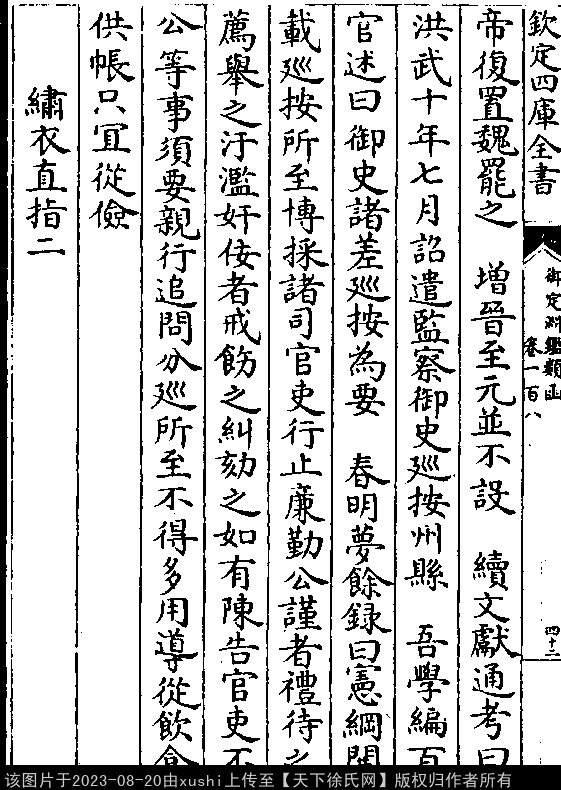 欽定四庫全書
御定淵鑑類函
卷一百八
四十二
帝復置魏罷之 增晉至元並不設 續文獻通考曰
洪武十年七月詔遣監察御史廵按州縣 吾學編百
官述曰御史諸差廵按為要 春明夢餘録曰憲綱開
載廵按所至博採諸司官吏行止廉勤公謹者禮待之
薦舉之汙濫奸佞者戒飭之糾劾之如有陳告官吏不
公等事須要親行追問分廵所至不得多用導從飲食
供帳只宜從儉
繡衣直指二
该图片于2023-08-20由xushi上传至【天下徐氏网】版权归作者所有